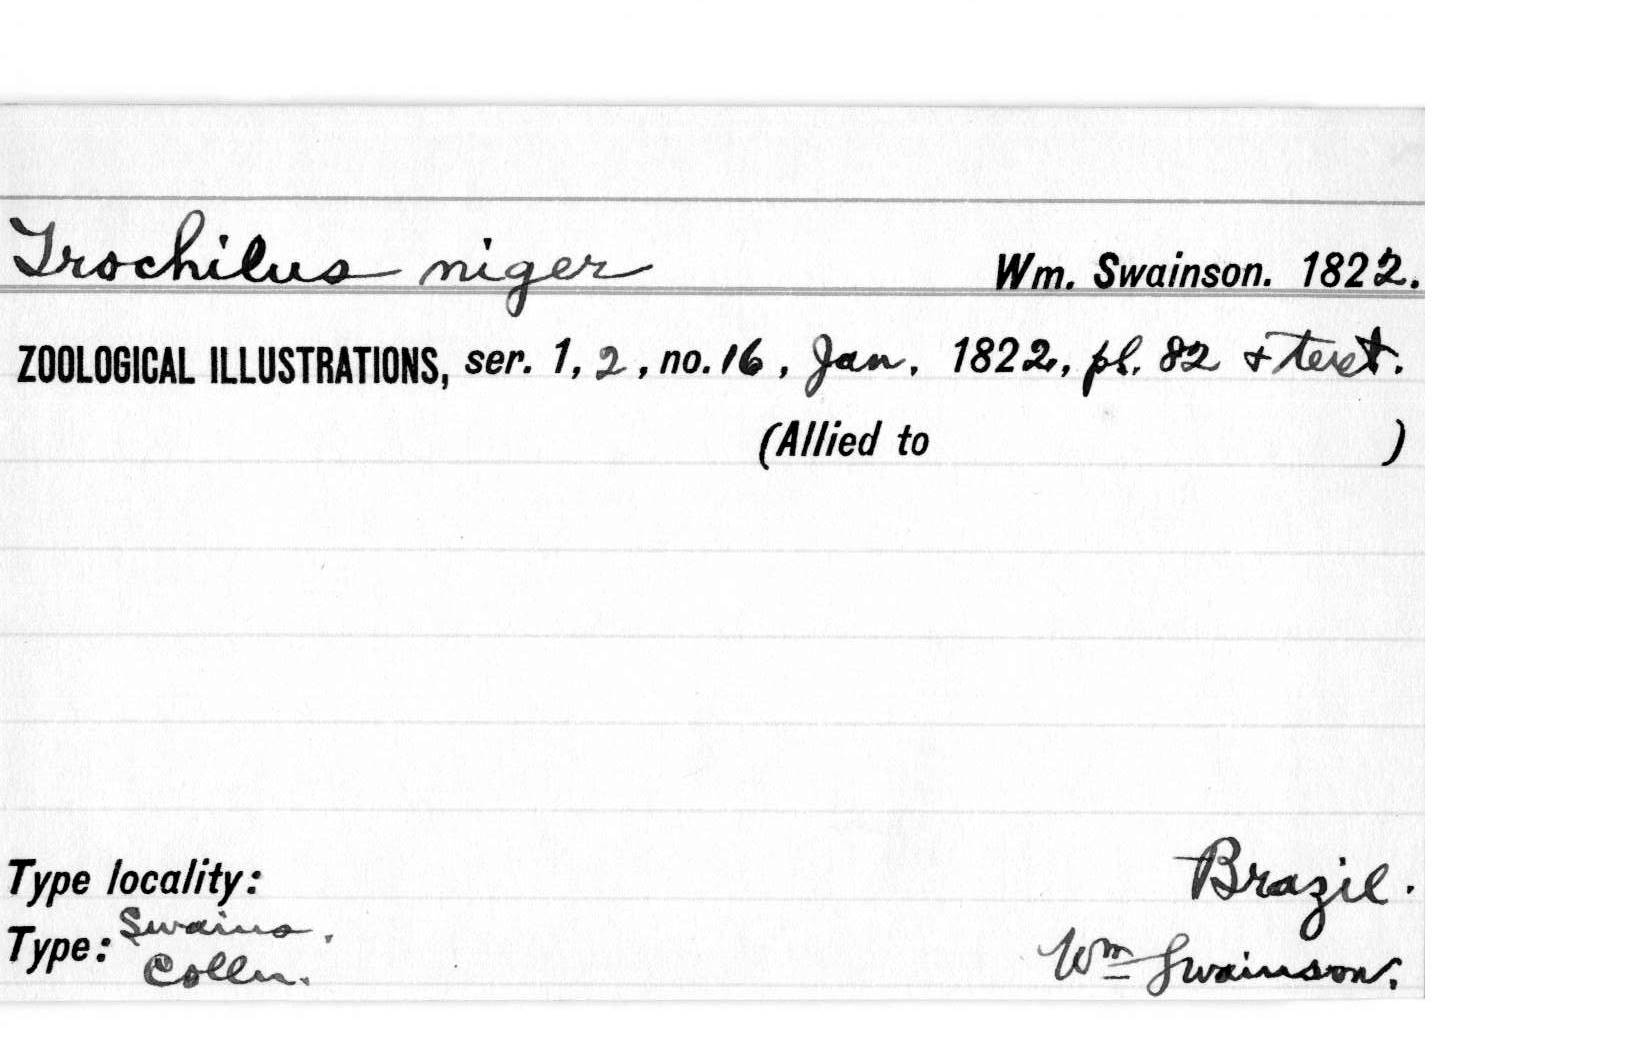 Trochilus niger Wm. Swainson. 1822.
ZOOLOGICAL ILLUSTRATIONS, ser. 1, 2, no. 16, Jan. 1822, pl. 82 & text.
(Allied to )
Type locality: Brazil.
Type: Swains. Colln. Wm Swainson.